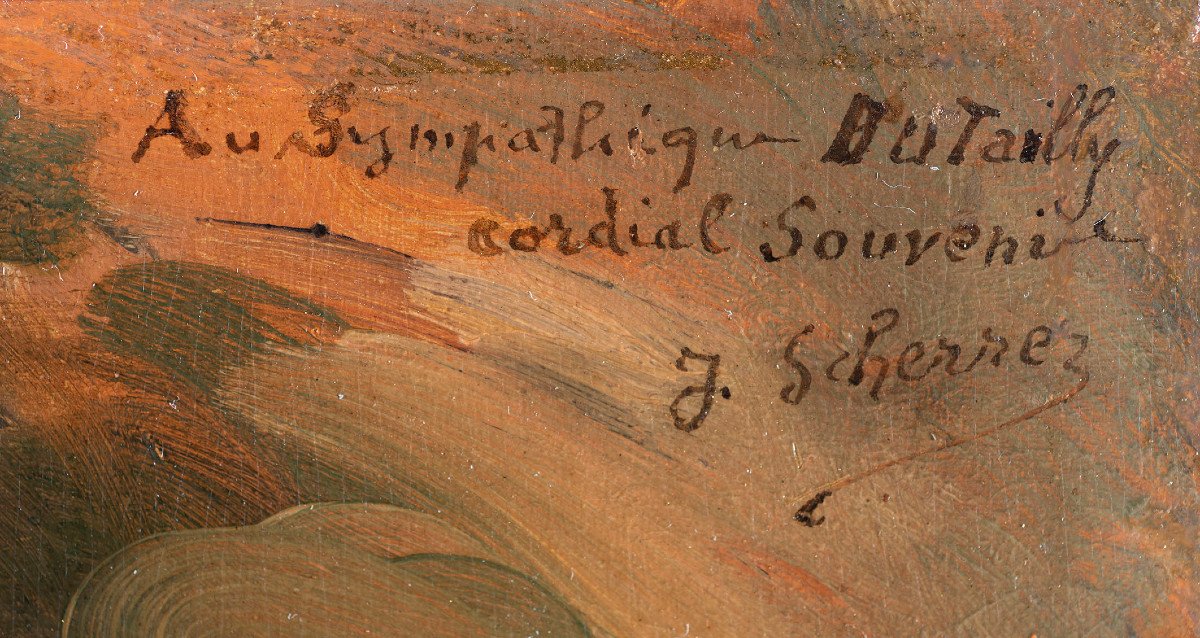 Au Sympathique Dutailly
cordial Souvenir
J. Scherrer